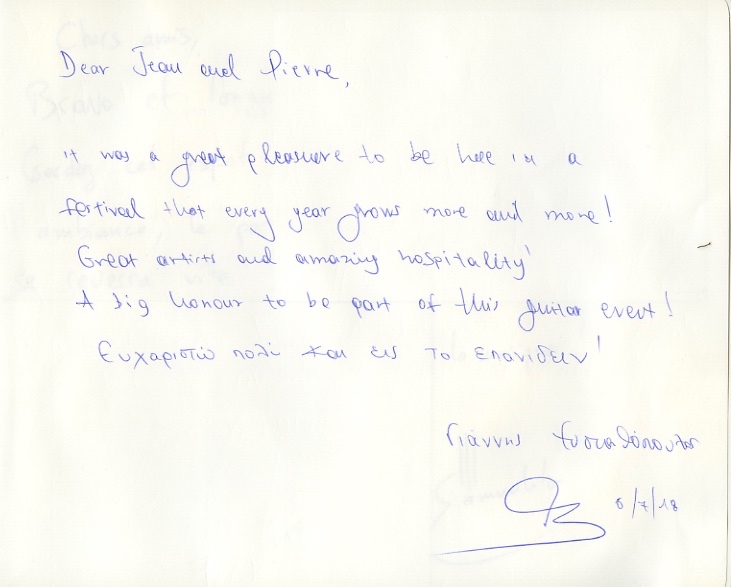 Dear Jean and Pierre,
it was a great pleasure to be here in a
festival that every year grows more and more!
Great artists and amazing hospitality!
A big honour to be part of this guitar event!
Ευχαριστώ πολύ και εις το επανιδείν!
Γιάννης Ευσταθόπουλος
6/7/18